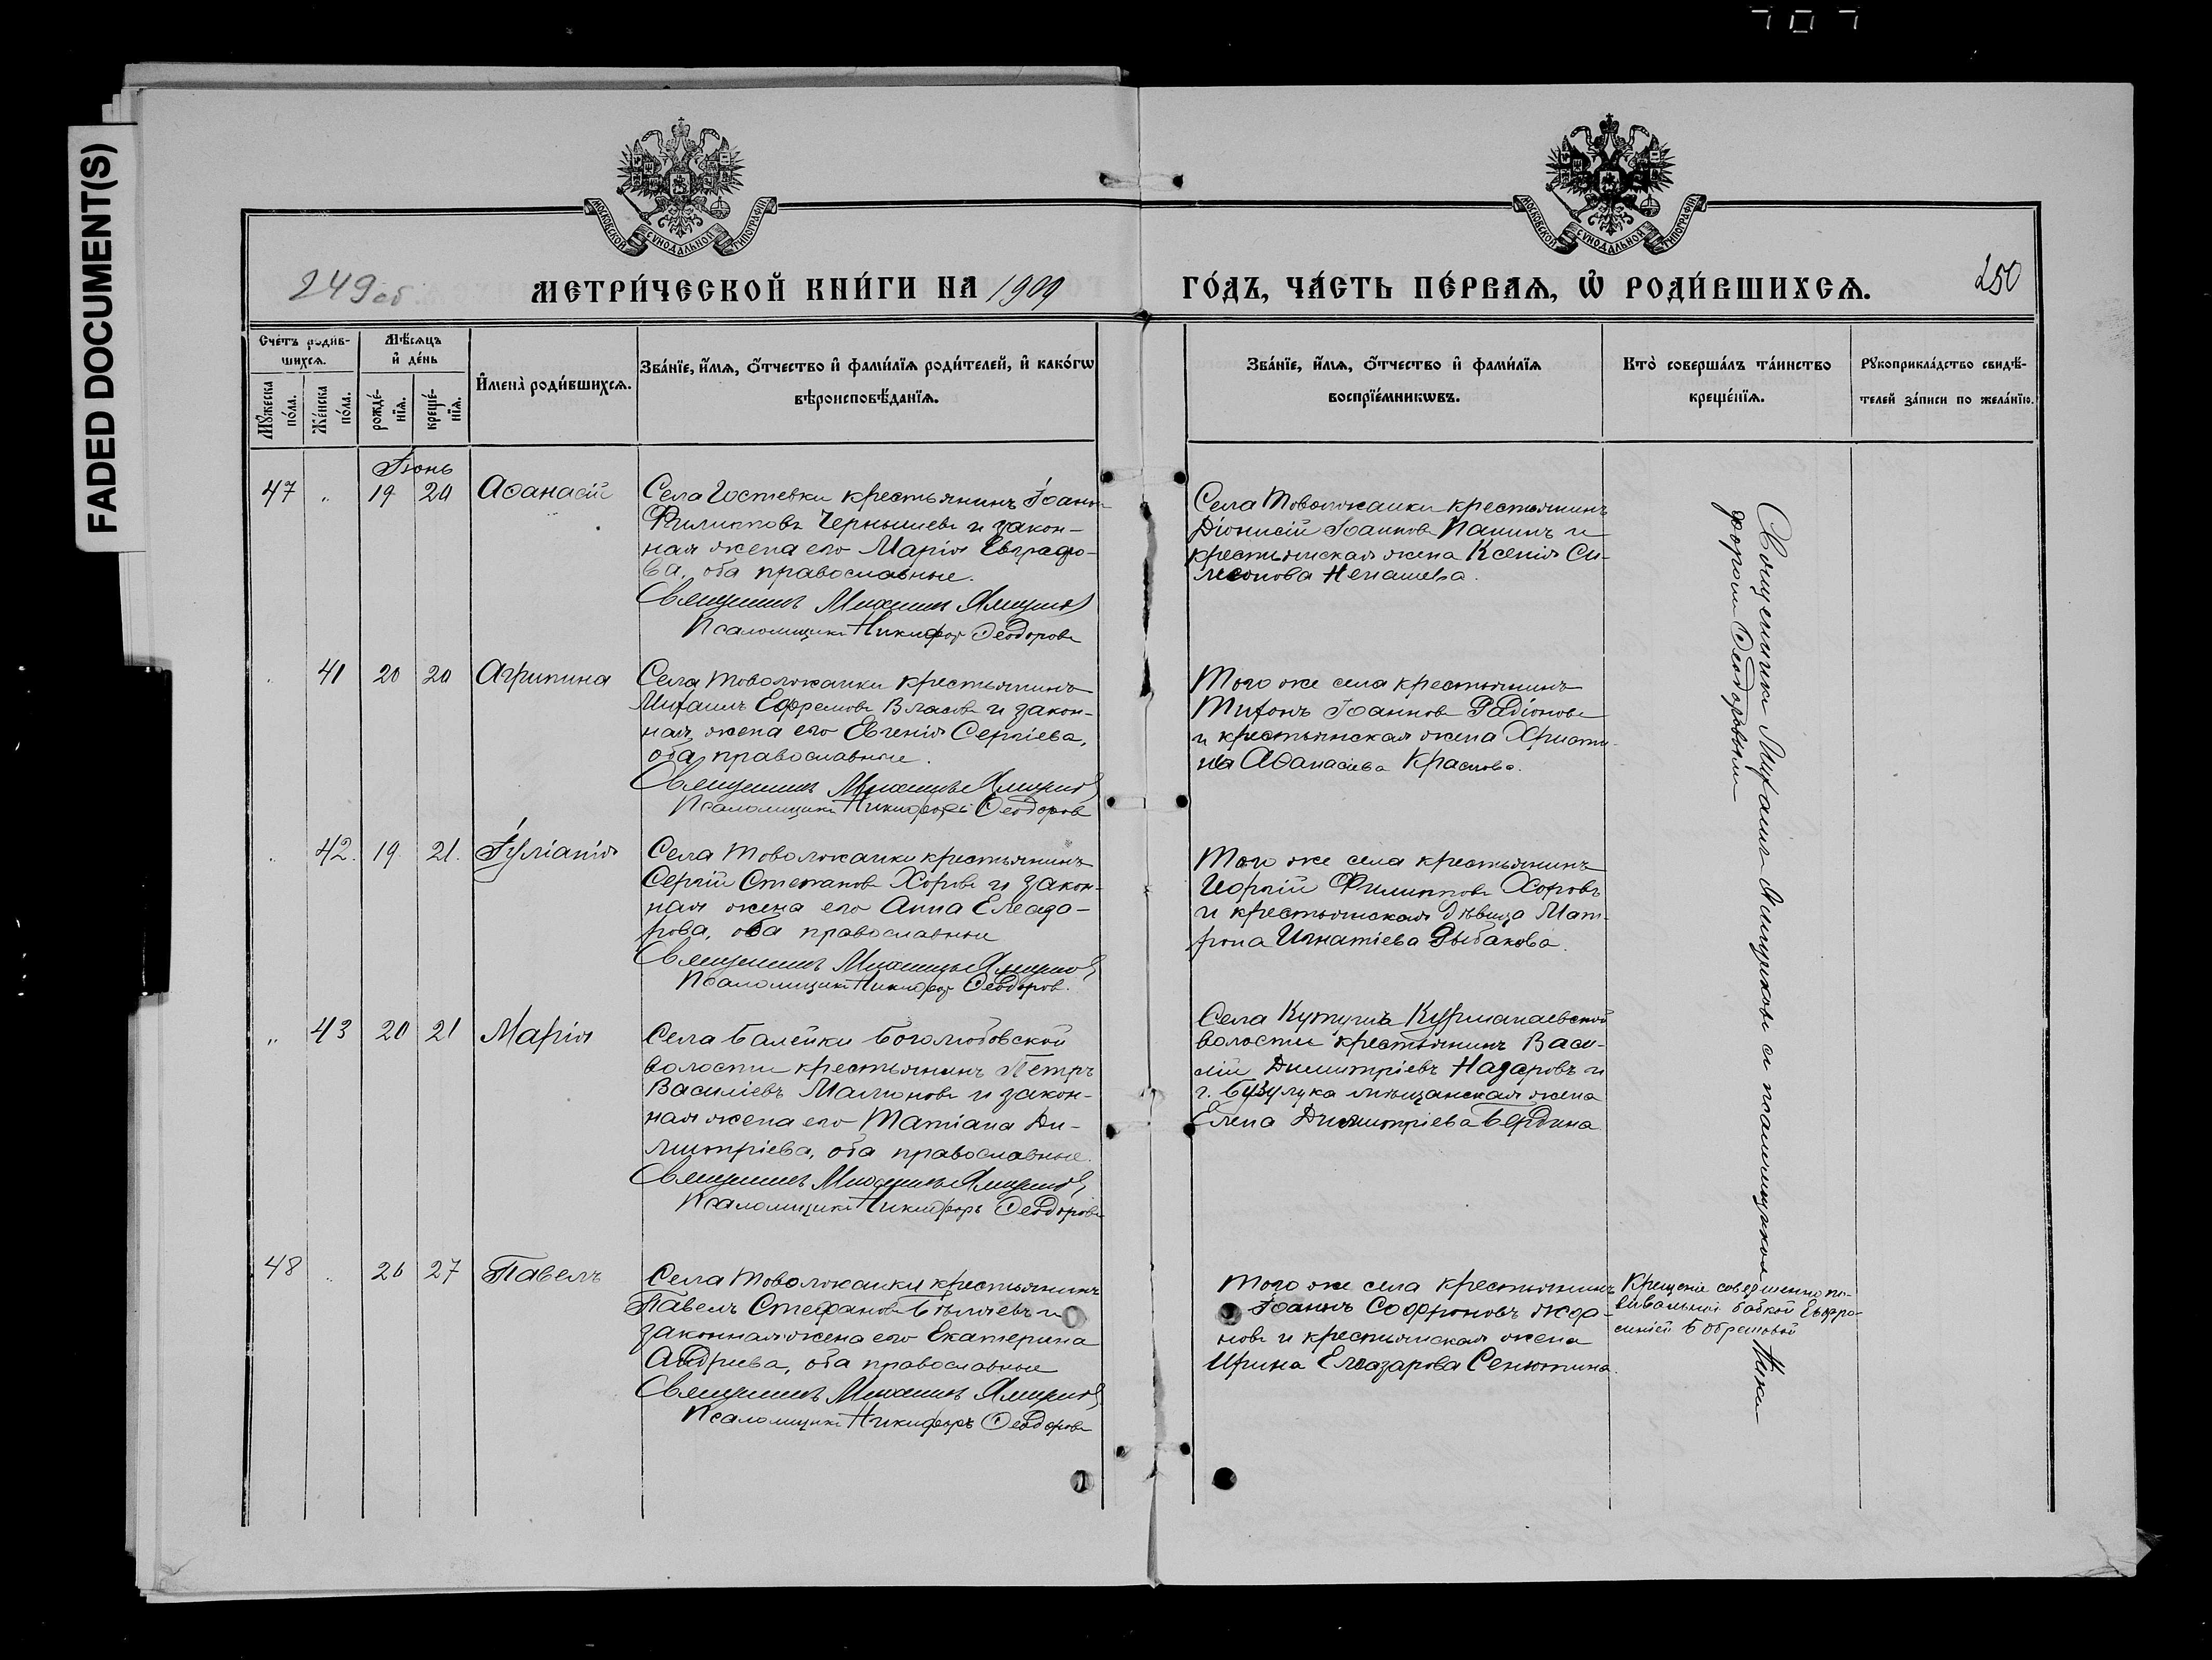 FADED DOCUMENT(S)
707
МОСКОВСКОЙ СѴНОДАЛЬНОЙ ТИПОГРАФІИ
МОСКОВСКОЙ СѴНОДАЛЬНОЙ ТИПОГРАФІИ
249 об
250
МЕТРИ́ЧЕСКОЙ КНИ́ГИ НА 1909
ГО́ДЪ, ЧА́СТЬ ПЕ́РВАѦ, Ѡ҆ РОДИ́ВШИХСѦ.
Сче́тъ роди́в-
шихсѧ.
Мꙋ́жеска
по́ла.
Же́нска
по́ла.
Мѣ́сѧцъ
и҆ де́нь
рожде́-
нїѧ.
креще́-
нїѧ.
И҆мена̀ роди́вшихсѧ.
Зва́нїе, и҆́мѧ, ѻ҆́тчество и҆ фами́лїѧ роди́телей, и҆ како́гѡ
вѣроисповѣ́данїѧ.
Зва́нїе, и҆́мѧ, ѻ҆́тчество и҆ фами́лїѧ
воспрїе́мникѡвъ.
Кто̀ соверша́лъ та́инство
креще́нїѧ.
Рꙋкоприкла́дство свидѣ́-
телей за́писи по жела́нїю.
Іюнь
47 „ 19 20 Аѳанасій
Села Гостевки крестьянинъ Іоаннъ
Филипповъ Чернышевъ и закон-
ная жена его Марія Евграфо-
ва, оба православные.
Священникъ Михаилъ
Псаломщикъ Никифоръ Ѳеодоровъ
Села Товолжанки крестьянинъ
Діонисій Іоанновъ Панинъ и
крестьянская жена Ксенія Си-
меонова Ненашева.
„ 41 20 20 Агрипина
Села Товолжанки крестьянинъ
Михаилъ Ефремовъ Власовъ и закон-
ная жена его Евгенія Сергіева,
оба православные.
Священникъ Михаилъ
Псаломщикъ Никифоръ Ѳеодоровъ
Того же села крестьянинъ
Тихонъ Іоанновъ Радіоновъ
и крестьянская жена Христи-
на Аѳанасіева Краснова.
„ 42. 19. 21. Іуліанія
Села Товолжанки крестьянинъ
Сергій Степановъ Хоровъ и закон-
ная жена его Анна Елеаза-
рова, оба православные
Священникъ Михаилъ
Псаломщикъ Никифоръ Ѳеодоровъ.
Того же села крестьянинъ
Георгій Филипповъ Хоровъ
и крестьянская дѣвица Мат-
рона Игнатіева Рыбакова.
„ 43 20 21 Марія
Села Балейки Боголюбовской
волости крестьянинъ Петръ
Василіевъ Мамоновъ и закон-
ная жена его Татіана Ди-
митріева, оба православные.
Священникъ Михаилъ
Псаломщикъ Никифоръ Ѳеодоровъ
Села Кутуша Курманаевской
волости крестьянинъ Васи-
лій Димитріевъ Назаровъ и
г. Бузулука мѣщанская жена
Елена Димитріева Бердина
48 „ 26 27 Павелъ
Села Товолжанки крестьянинъ
Павелъ Стефановъ Бѣляевъ и
законная жена его Екатерина
Андреева, оба православные
Священникъ Михаилъ
Псаломщикъ Никифоръ Ѳеодоровъ
Того же села крестьянинъ
Іоаннъ Софроновъ Жда-
новъ и крестьянская жена
Ирина Елеазарова Сенютина.
Крещеніе совершено по-
вивальной бабкой Евфро-
синіей
Священникъ Михаилъ и псаломщикъ Ники-
форъ Ѳеодоровъ